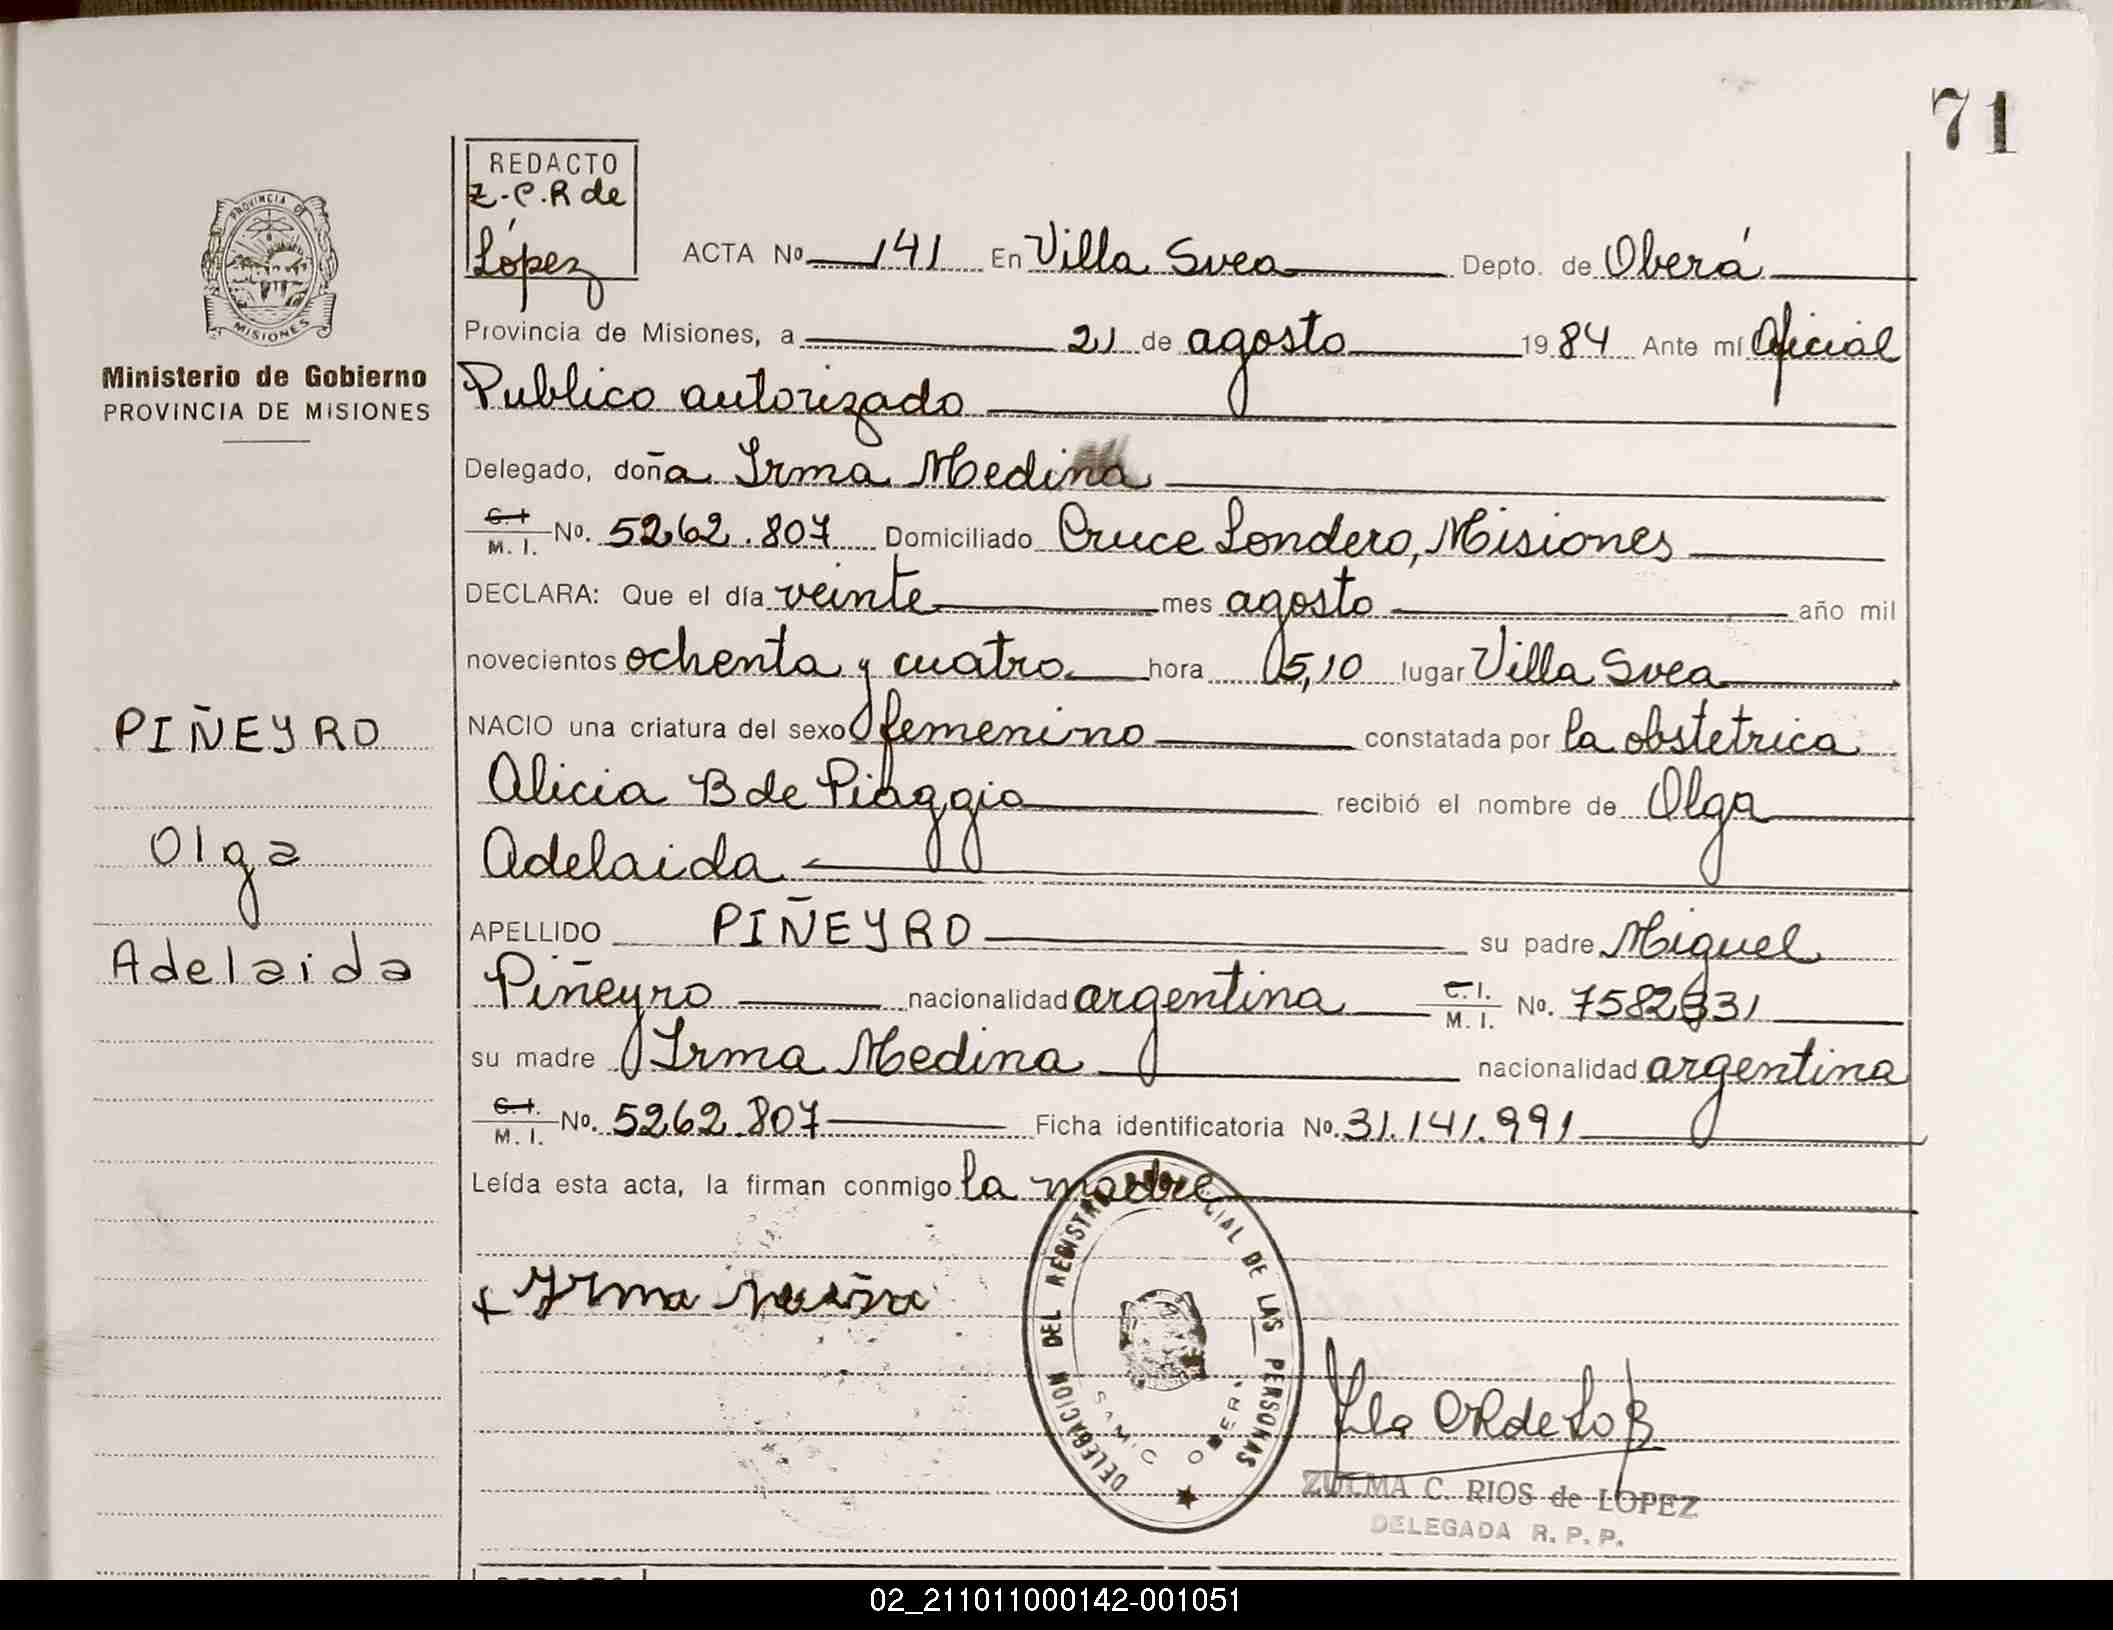 71
REDACTO
Z-C.R de
López
PROVINCIA DE
MISIONES
Ministerio de Gobierno
PROVINCIA DE MISIONES
ACTA Nº 141 En Villa Svea Depto. de Oberá
Provincia de Misiones, a 21 de agosto 1984 Ante mí Oficial
Publico autorizado
Delegado, doña Irma Medina
C.I. M.I. No. 5262.807 Domiciliado Cruce Londero, Misiones
DECLARA: Que el día veinte mes agosto año mil
novecientos ochenta y cuatro hora 05,10 lugar Villa Svea
NACIO una criatura del sexo femenino constatada por la obstetrica
Alicia B de Piaggio recibió el nombre de Olga
Adelaida
APELLIDO PIÑEYRO su padre Miguel
Piñeyro nacionalidad argentina C.I. M.I. No. 7582331
su madre Irma Medina nacionalidad argentina
C.I. M.I. No. 5262.807 Ficha identificatoria No. 31.141.991
Leída esta acta, la firman conmigo la madre
PIÑEYRO
Olga
Adelaida
Irma
DELEGACION DEL REGISTRO PROVINCIAL DE LAS PERSONAS
ZULMA C. RIOS de LOPEZ
DELEGADA R. P. P.
02_211011000142-001051